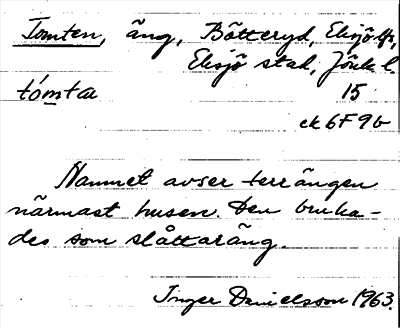 Tomten, äng, Bötteryd, Eksjö lfs,
Eksjö stad, Jönk. l.
tómta 15
ek 6F 9b
Namnet avser terrängen
närmast husen. Den bruka-
des som slåtteräng.
Inger Danielsson 1963.